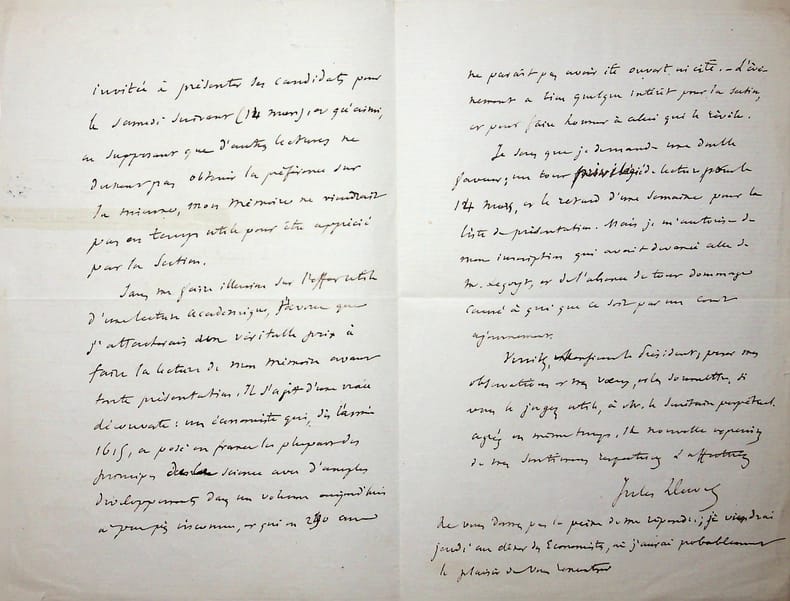 invitée à présenter ses candidats pour
le samedi suivant (14 mars), et qu'ainsi,
en supposant que d'autres lectures ne
dussent pas obtenir la préférence sur
la mienne, mon mémoire ne viendrait
pas en temps utile pour être apprécié
par la Section.
Sans me faire illusion sur l'effet utile
d'une lecture académique, j'avoue que
j'attacherais un véritable prix à
faire la lecture de mon mémoire avant
toute présentation. Il s'agit d'une vraie
découverte : un économiste qui, dès l'année
1615, a posé en france la plupart des
principes de la science avec d'amples
développements dans un volume aujourd'hui
à peu près inconnu, et qui en 250 ans
ne paraît pas avoir été ouvert ni cité. — L'évé-
nement a bien quelque intérêt pour la section,
et pour faire honneur à celui qui le révèle.
Je sais que je demande une double
faveur ; un tour privilégié de lecture pour le
14 mars, et le retard d'une semaine pour la
liste de présentation. Mais je m'autorise de
mon inscription qui avait devancé celle de
M. Legoyt, et de l'absence de tout dommage
causé à qui que ce soit par un court
ajournement.
Veuillez, Monsieur le Président, peser mes
observations et mes vœux, et les soumettre, si
vous le jugez utile, à M. le Secrétaire perpétuel.
agréez en même temps, la nouvelle expression
de mes sentiments respectueux &
Jules Duval
Ne vous donnez pas la peine de me répondre ; je viendrai
jeudi au dîner des Economistes, où j'aurai probablement
le plaisir de vous rencontrer